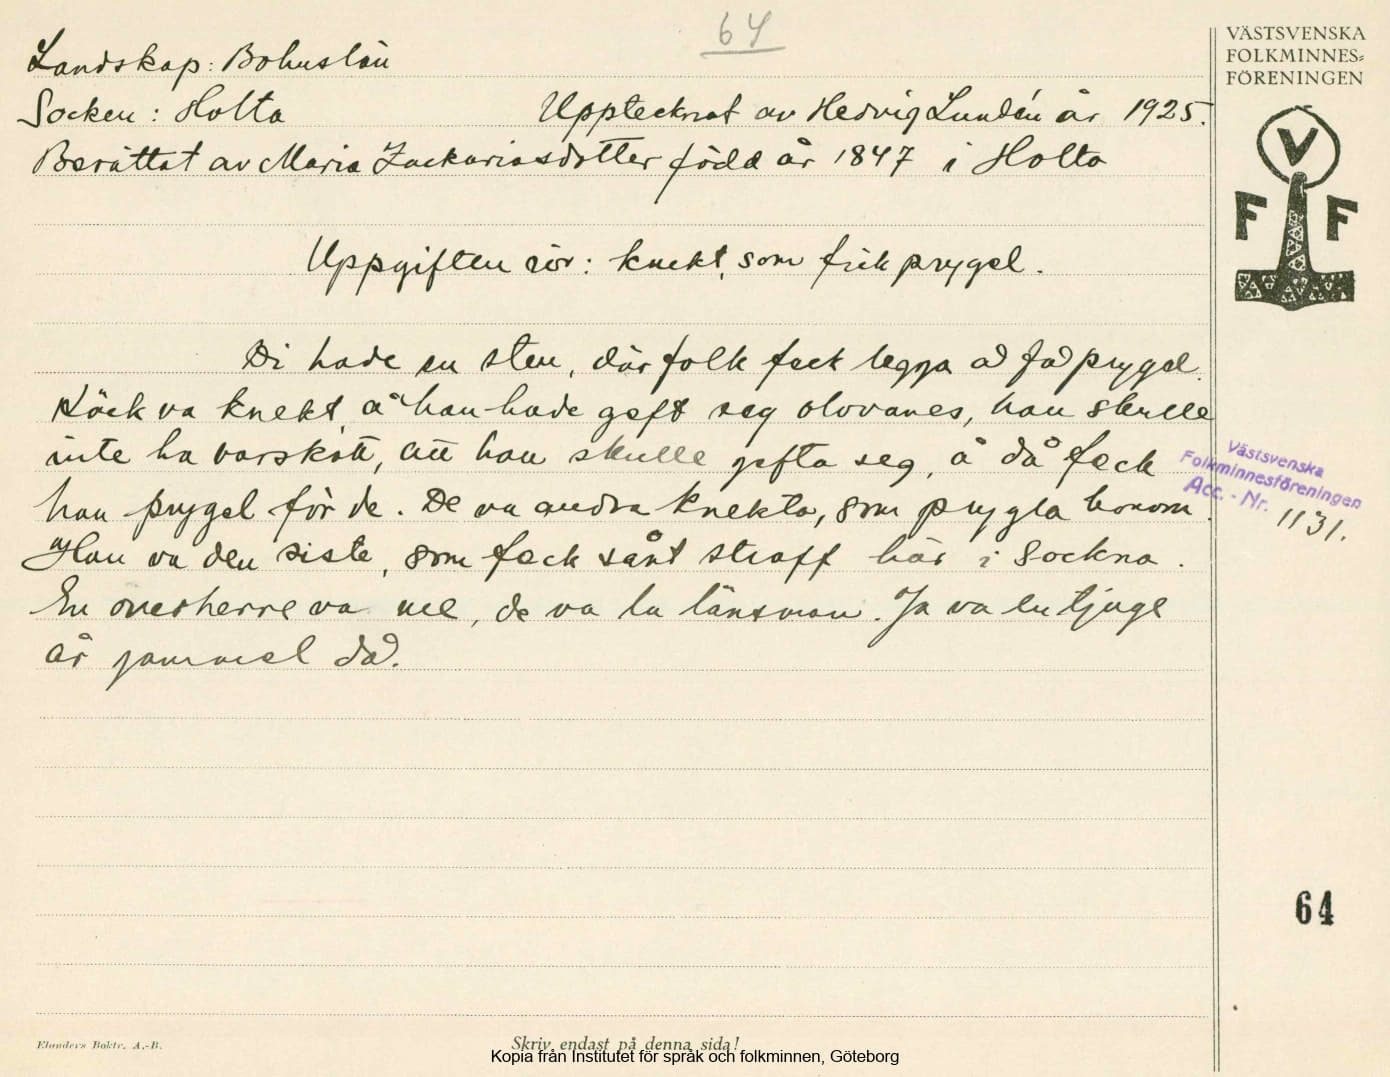 64
Landskap: Bohuslän
Socken: Holta
Upptecknat av Hedvig Lundén år 1925.
Berättat av Maria Zackariasdotter född år 1847 i Holta
Uppgiften rör: knekt, som fick prygel.
Di hade en sten, där folk feck legga å få prygel.
Köck va knekt, å han hade geft seg olovanes, han skulle
inte ha varskött, att han skulle gefta seg, å då feck
han prygel för de. De va andra knekta, som prygla honom.
Han va den siste, som feck sånt straff här i sockna.
En överherre va me, de va la länsman. Ja va en tjuge
år gammel då.
VÄSTSVENSKA
FOLKMINNES=
FÖRENINGEN
V
F F
Västsvenska
Folkminnesföreningen
Acc. - Nr. 1131.
64
Elanders Boktr. A.-B.
Skriv endast på denna sida!
Kopia från Institutet för språk och folkminnen, Göteborg